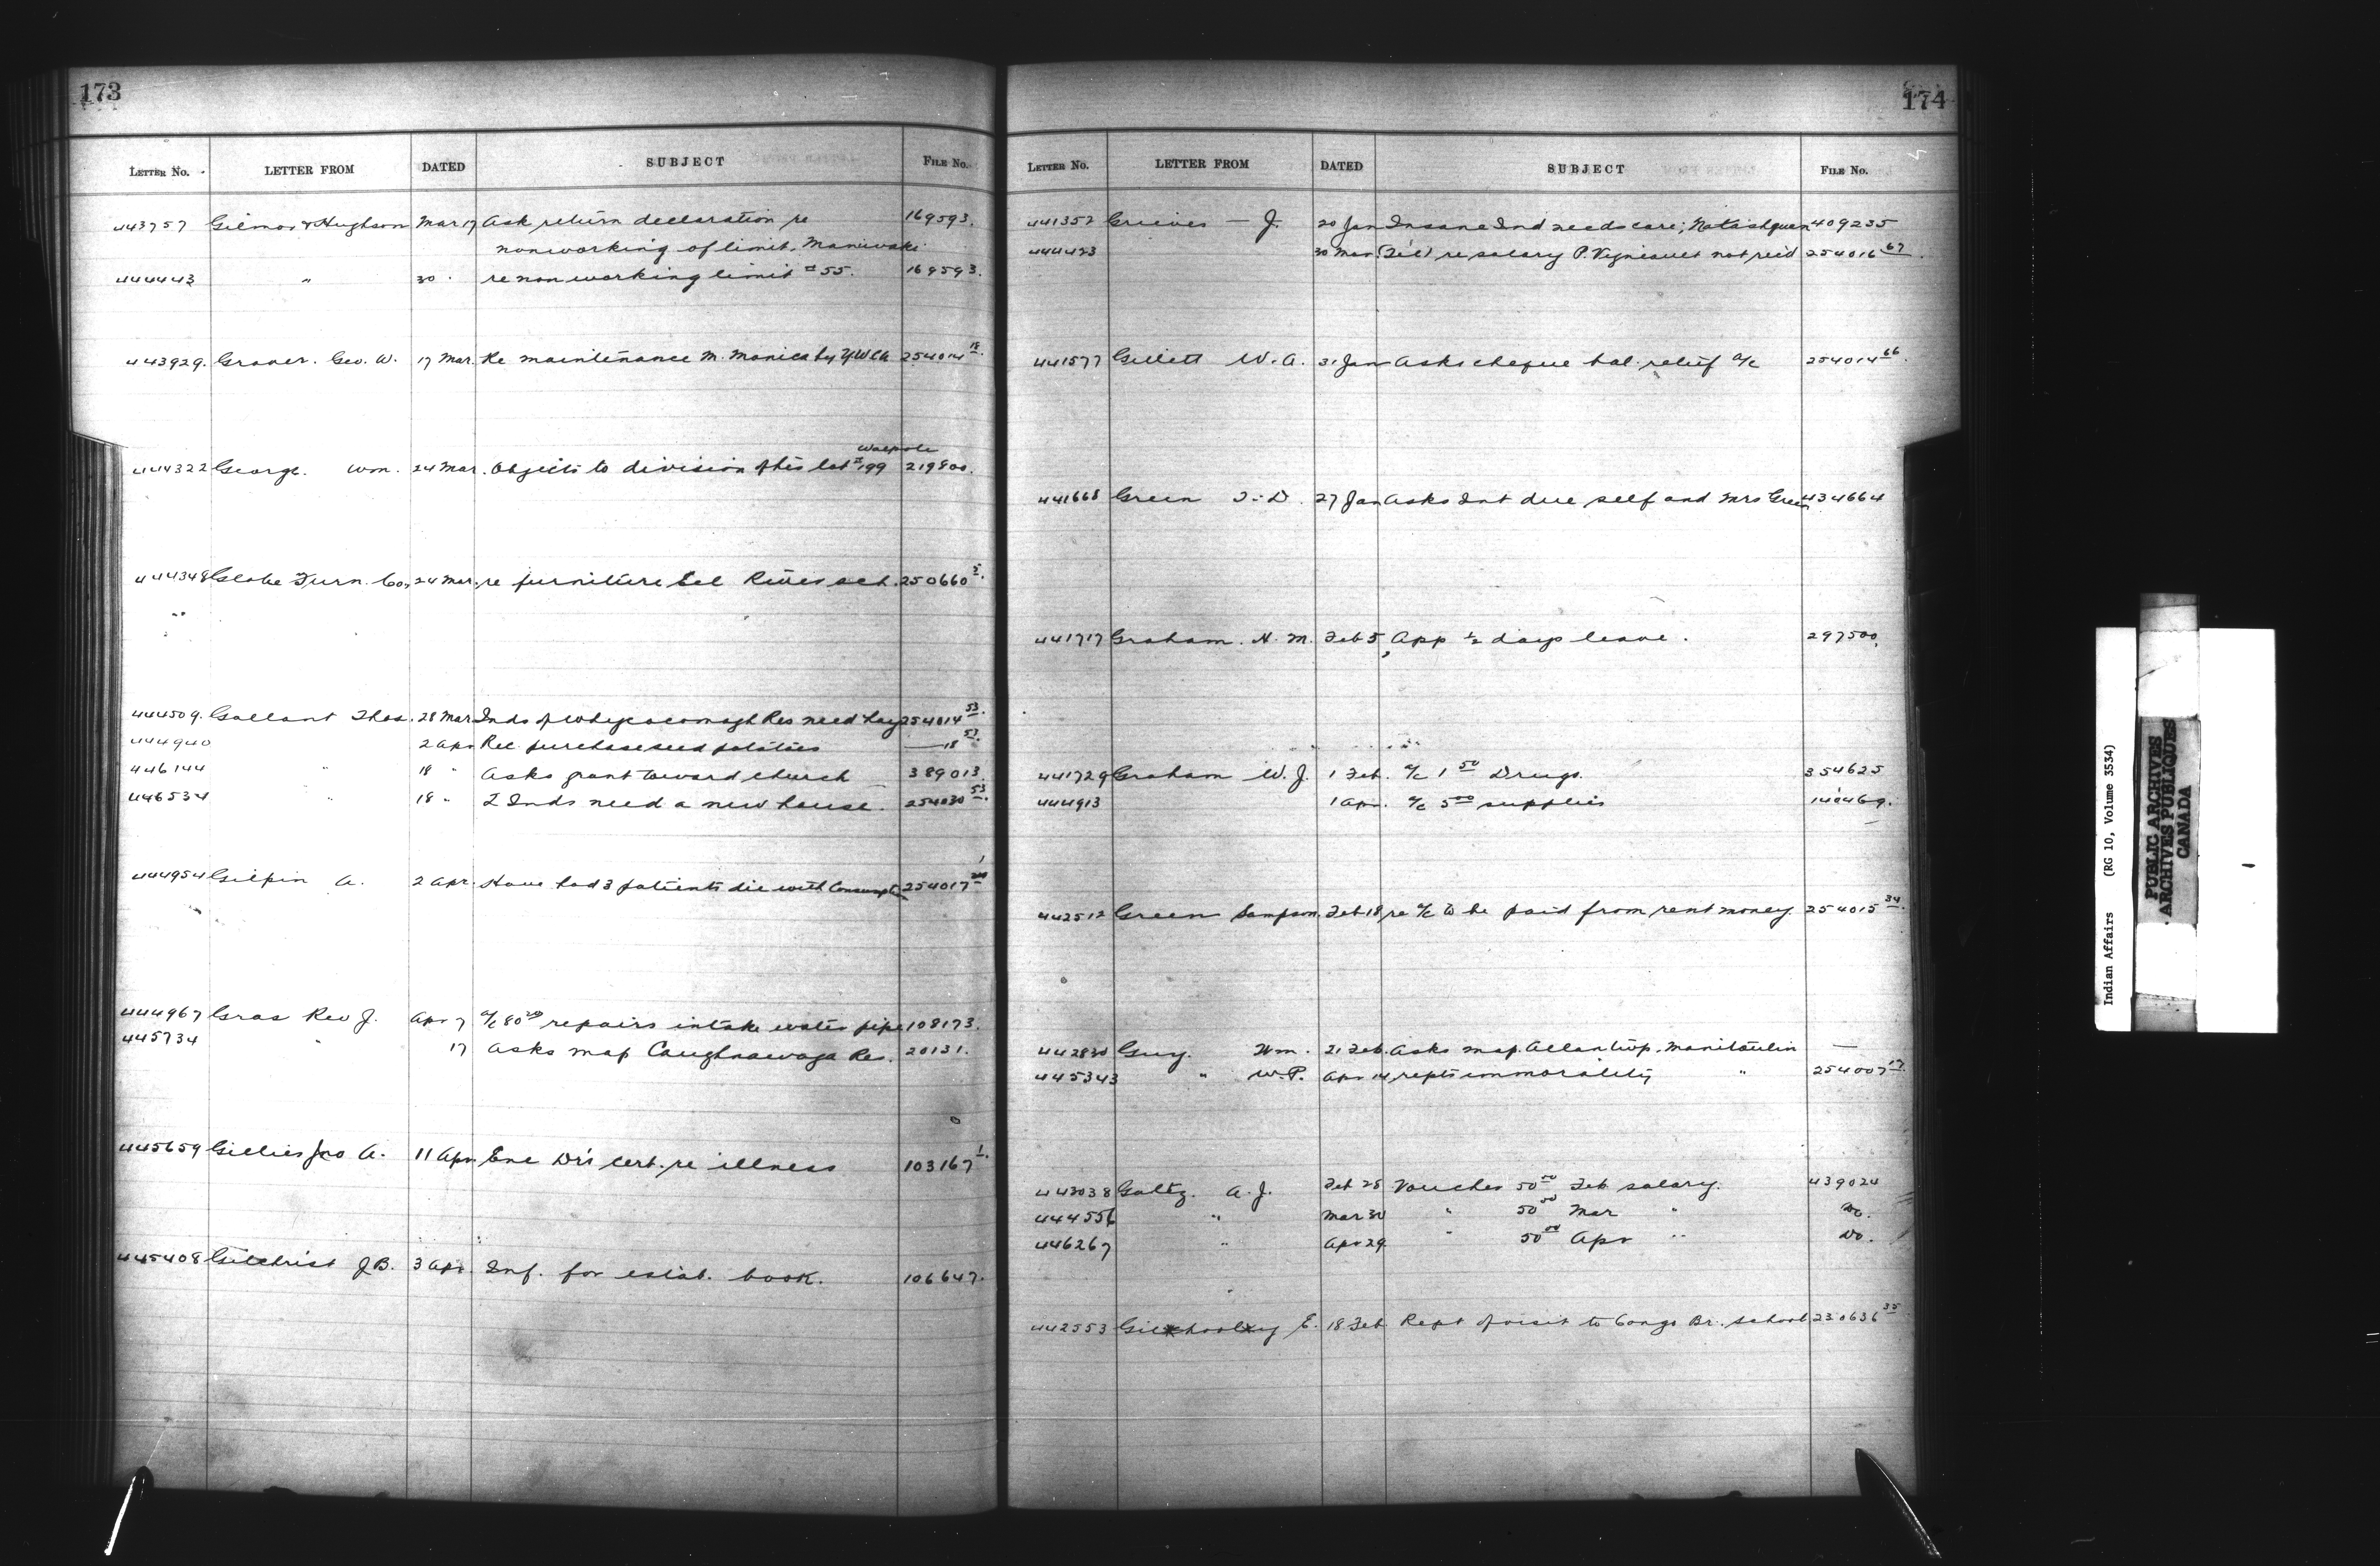 173
LETTER No. LETTER FROM DATED SUBJECT FILE No.
443757 Gilmor & Hughson Mar 17 Ask return declaration re 169593.
nonworking of limit. Maniwaki.
444443 " 30 " re nonworking limit #55. 169593.
443929. Graver. Geo. W. 17 Mar. Re maintenance M. Monica by YWCA 254014 18.
Walpole
444322 George. Wm. 24 Mar. Objects to division of his lot #199 219800.
444348 Globe Furn. Co. 24 Mar. re furniture Eel River sch. 250660 5.
444509. Gallant Thos. 28 Mar Inds of Whycocomagh Res need hay 254014 53.
444940 2 Apr Rec. purchase seed potatoes — 18 53.
446144 " 18 " Asks grant toward church 389013.
446534 " 18 " 2 Inds need a new house. 254030 53.
444954 Gilpin A. 2 Apr. Have had 3 patients die with Consumption 254017 1
444967 Gras Rev J. Apr 7 a/c 80 repairs intake water pipe 108173.
445734 " 17 Asks map Caughnawaga Res. 20131.
445659 Gillies Jno A. 11 Apr. Enc Dr's cert. re illness 103167 1.
445408 Gilchrist J.B. 3 Apr. Inf. for estab. book. 106647.
174
LETTER No. LETTER FROM DATED SUBJECT FILE No.
441352 Grieves — J. 20 Jan Insane Ind needs care; Natashquan 409235
444423 30 Mar (Tel) re salary P. Vigneault not rec'd 254016 67.
441577 Gillett W. A. 31 Jan Asks cheque bal. relief a/c 254014 66.
441668 Green T. D. 27 Jan Asks Int due self and Mrs Green 434664
441717 Graham. H. M. Feb 5, App ½ days leave. 297500.
441729 Graham W. J. 1 Feb. a/c 1 50 Drugs. 354625
444913 1 Apr. a/c 5 00 supplies 140469.
442512 Green Sampson. Feb 18 re a/c to be paid from rent money. 254015 34.
442830 Guy. Wm. 21 Feb. Asks map. Allan twp. Manitoulin —
445343 " W.P. Apr 14 repts immorality " 254007 17.
443038 Goltz. A. J. Feb 28 Voucher 50 00 Feb salary. 439024
444556 " Mar 30 " 50 00 Mar " Do.
446267 " Apr 29 " 50 00 Apr " Do.
442553 Gilhooly E. 18 Feb Rept of visit to Congo Br. School 230636 35
Indian Affairs (RG 10, Volume 3534)
PUBLIC ARCHIVES
ARCHIVES PUBLIQUES
CANADA